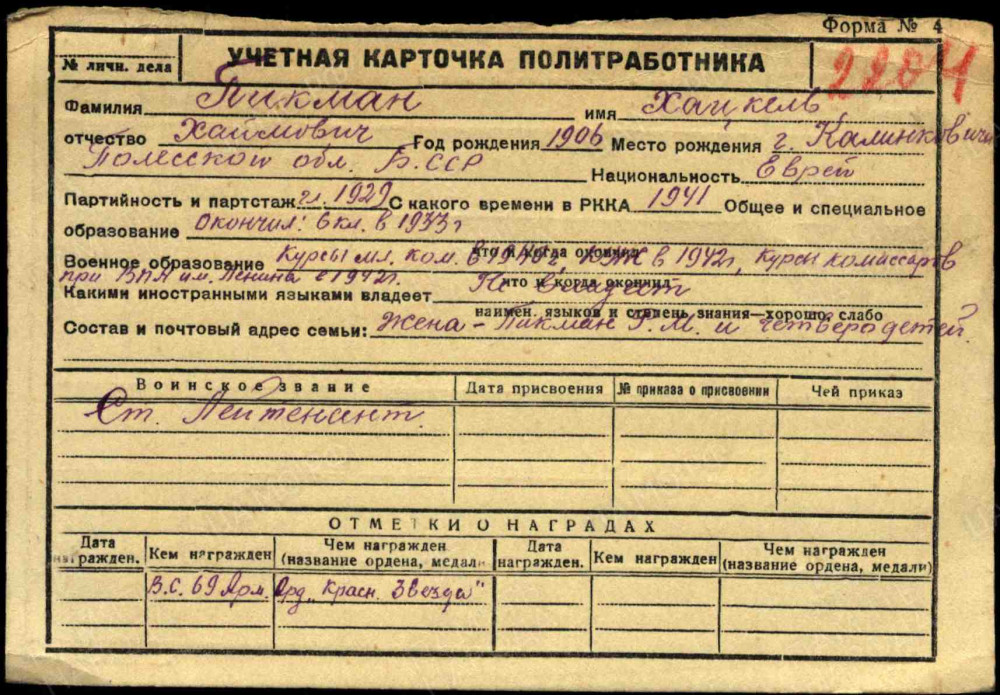 Форма № 4
№ личн. дела УЧЕТНАЯ КАРТОЧКА ПОЛИТРАБОТНИКА 2204
Фамилия Пикман имя Хацкель
отчество Хаймович Год рождения 1906 Место рождения г. Калинковичи
Полесской обл. Б.ССР Национальность Еврей
Партийность и партстаж чл. 1929 С какого времени в РККА 1941 Общее и специальное
образование Окончил: 6 кл. в 1933 г
что и когда окончил
Военное образование Курсы мл. ком. в в 1942 г, курсы комиссаров
при ВПА им. Ленина в 1942 г.
что и когда окончил
Какими иностранными языками владеет Не владеет
наимен. языков и степень знания—хорошо, слабо
Состав и почтовый адрес семьи: Жена - Пикман Г. М. и четверо детей.
Воинское звание Дата присвоения № приказа о присвоении Чей приказ
Ст. Лейтенант
ОТМЕТКИ О НАГРАДАХ
Дата награжден. Кем награжден Чем награжден (название ордена, медали) Дата награжден. Кем награжден Чем награжден (название ордена, медали)
В.С. 69 Арм. Орд. „Красн. Звезда"